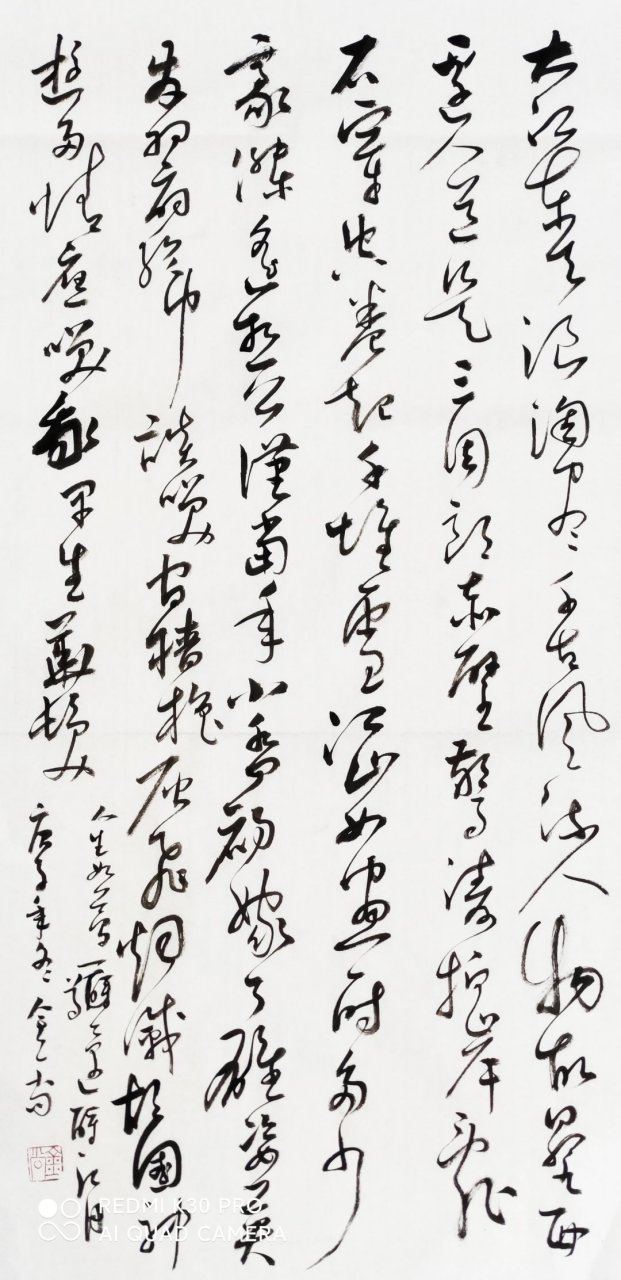 大江东去浪淘尽千古风流人物故垒西
边人道是三周郎赤壁惊涛拍岸乱
石穿空卷起千堆雪江山如画一时多少
豪傑遥想公瑾当年小乔初嫁了雄姿英
发羽扇纶巾谈笑间樯橹灰飞烟灭故国神
游多情应笑我早生华髮
人生如梦一樽还酹江月
庚子年冬金尚
REDMI K30 PRO
AI QUAD CAMERA